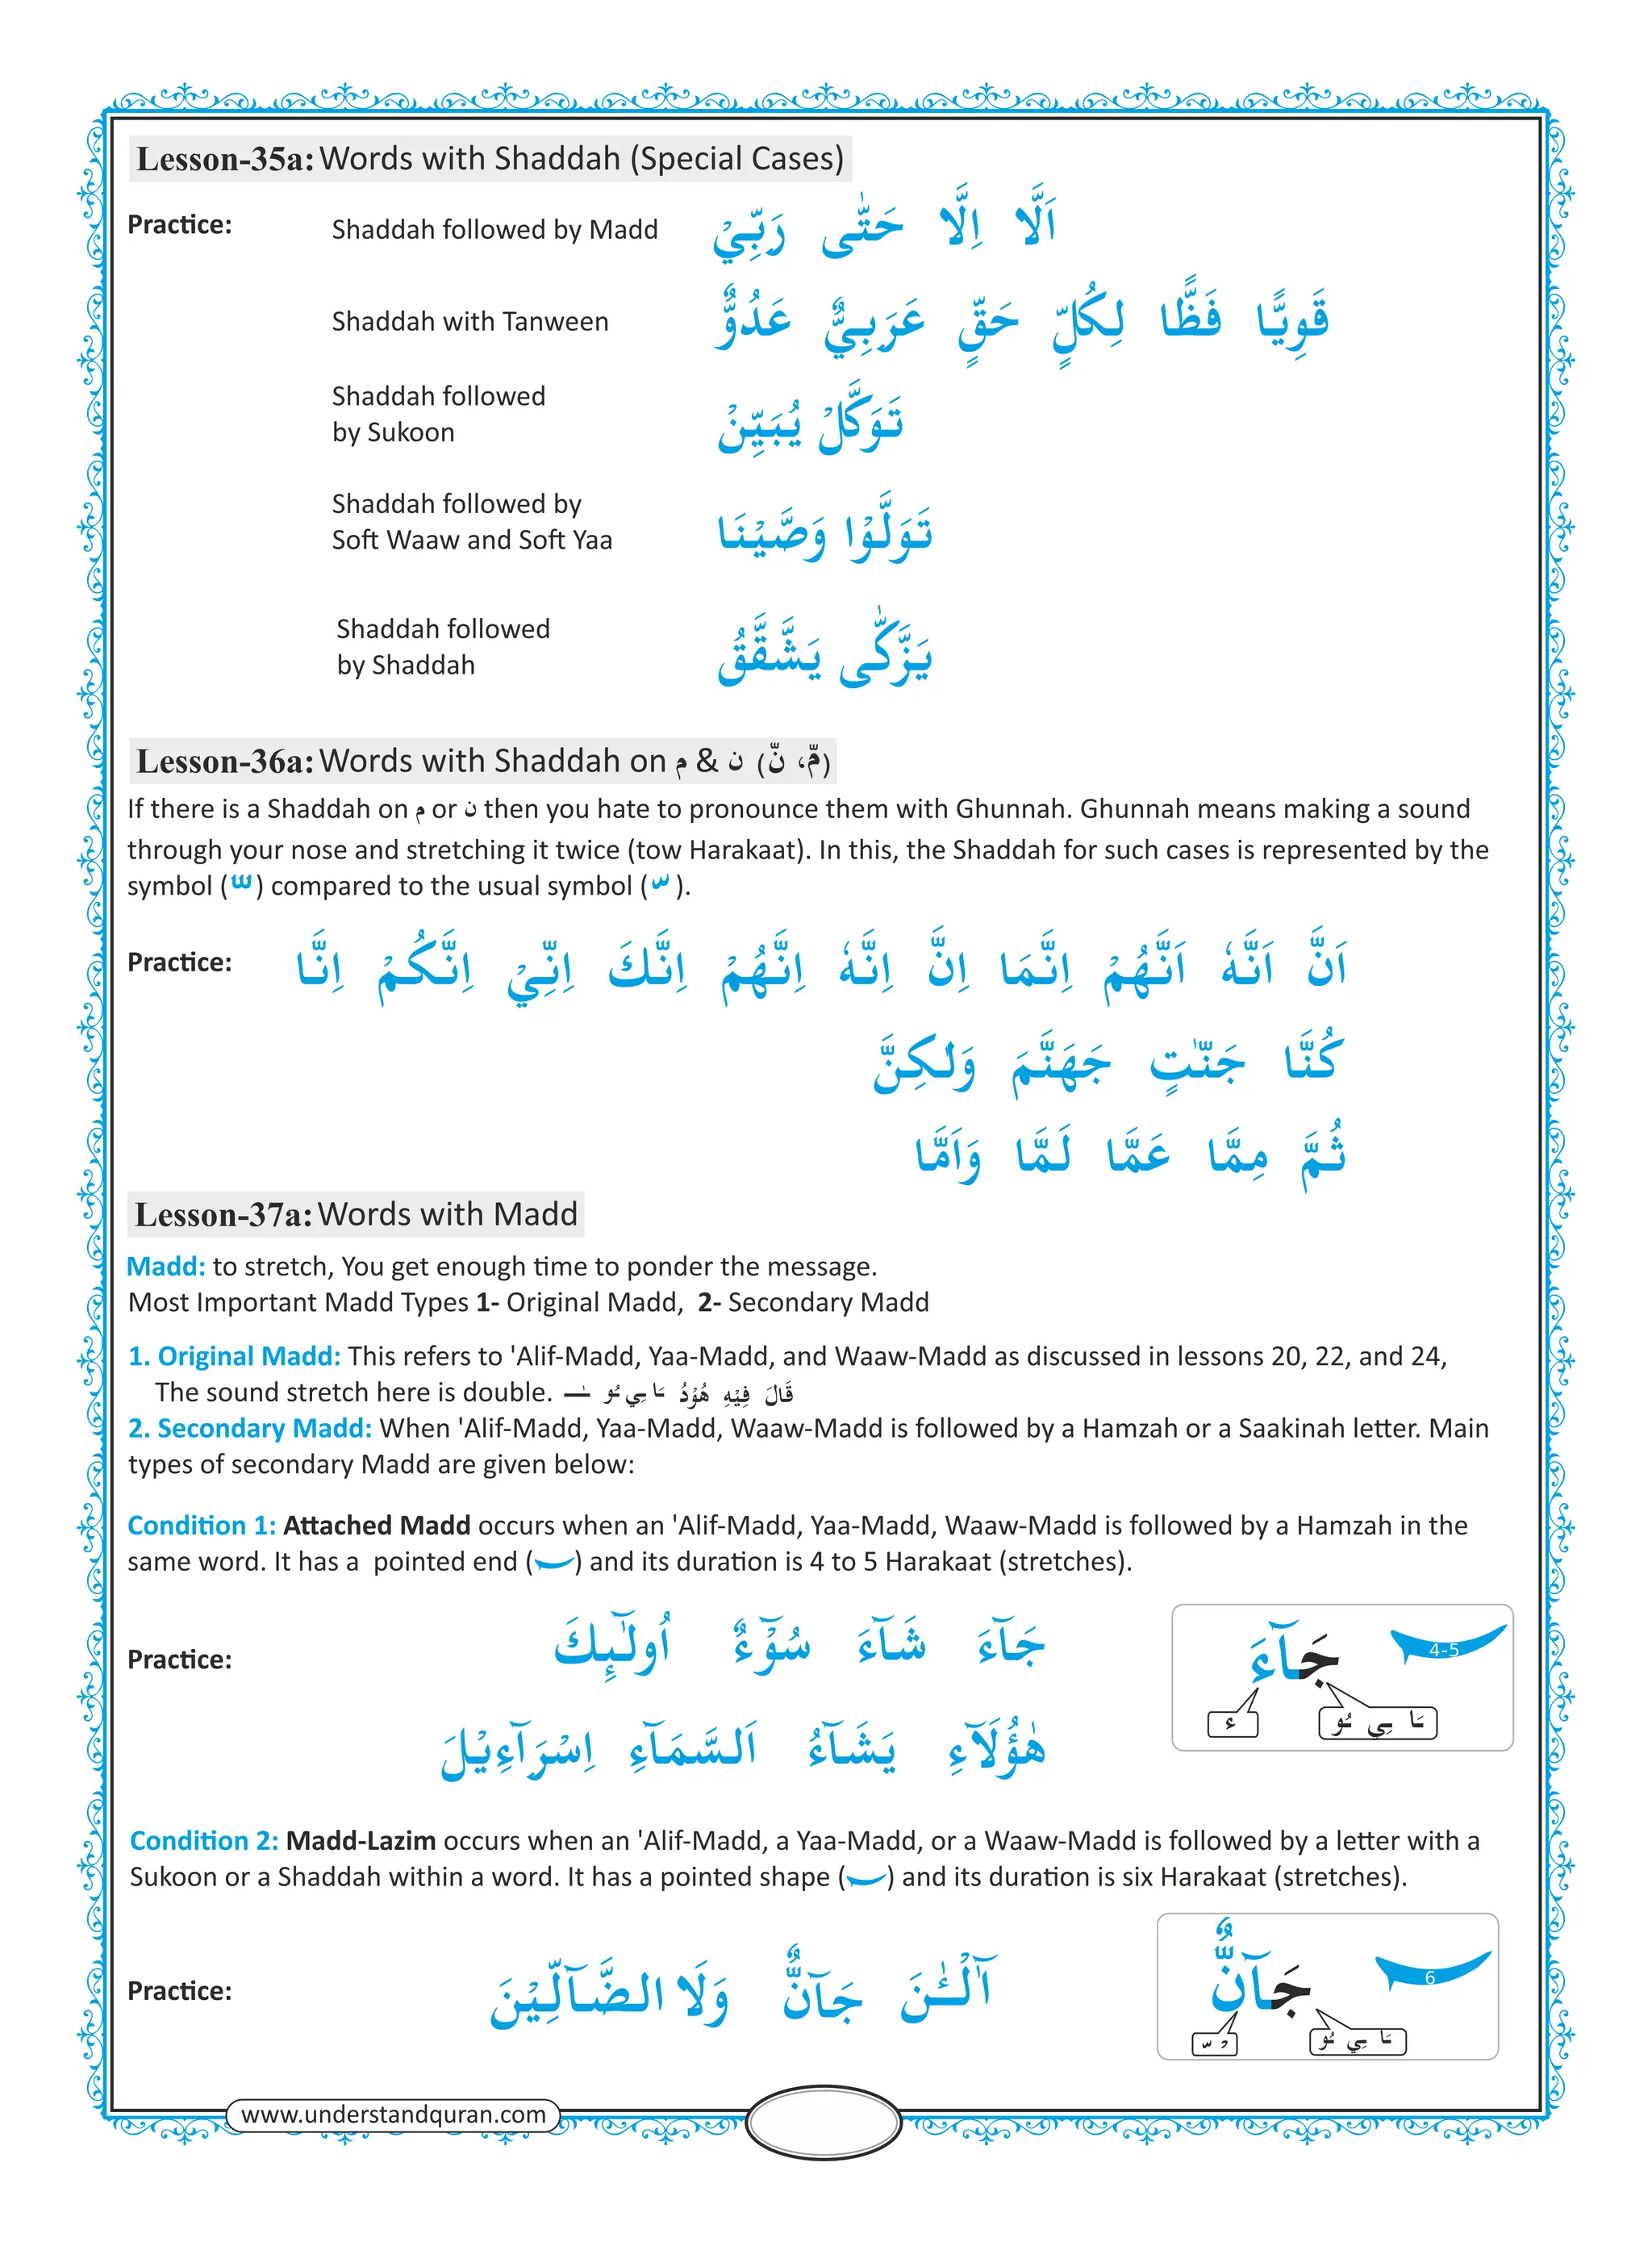 Lesson-35a: Words with Shaddah (Special Cases)
Practice: Shaddah followed by Madd اَلَّا اِلَّا حَتّٰى رَبِّيْ
Shaddah with Tanween قَوِيًّا فَظًّا لِكُلٍّ حَقٍّ عَرَبِيٌّ عَدُوٌّ
Shaddah followed
by Sukoon تَوَكَّلْ يُبَيِّنْ
Shaddah followed by
Soft Waaw and Soft Yaa تَوَلَّوْا وَصَّيْنَا
Shaddah followed
by Shaddah يَزَّكّٰى يَشَّقَّقُ
Lesson-36a: Words with Shaddah on م & ن (نّ ،مّ)
If there is a Shaddah on م or ن then you hate to pronounce them with Ghunnah. Ghunnah means making a sound
through your nose and stretching it twice (tow Harakaat). In this, the Shaddah for such cases is represented by the
symbol ( ّ ) compared to the usual symbol ( ّ ).
Practice: اَنَّ اَنَّهٗ اَنَّهُمْ اِنَّمَا اِنَّ اِنَّهٗ اِنَّهُمْ اِنَّكَ اِنِّيْ اِنَّكُمْ اِنَّا
كُنَّا جَنّٰتٍ جَهَنَّمَ وَلٰكِنَّ
ثُمَّ مِمَّا عَمَّا لَمَّا وَاَمَّا
Lesson-37a: Words with Madd
Madd: to stretch, You get enough time to ponder the message.
Most Important Madd Types 1- Original Madd, 2- Secondary Madd
1. Original Madd: This refers to 'Alif-Madd, Yaa-Madd, and Waaw-Madd as discussed in lessons 20, 22, and 24,
The sound stretch here is double. قَالَ فِيْهِ هُوْدُ ـَا ـِي ـُو ـٰ
2. Secondary Madd: When 'Alif-Madd, Yaa-Madd, Waaw-Madd is followed by a Hamzah or a Saakinah letter. Main
types of secondary Madd are given below:
Condition 1: Attached Madd occurs when an 'Alif-Madd, Yaa-Madd, Waaw-Madd is followed by a Hamzah in the
same word. It has a pointed end ( ٓ ) and its duration is 4 to 5 Harakaat (stretches).
Practice: جَآءَ شَآءَ سُوْٓءٌ اُولٰٓئِكَ
هٰٓؤُلَآءِ يَشَآءُ اَلسَّمَآءِ اِسْرَآءِيْلَ
4-5 جَآءَ
ـَا ـِي ـُو ء
Condition 2: Madd-Lazim occurs when an 'Alif-Madd, a Yaa-Madd, or a Waaw-Madd is followed by a letter with a
Sukoon or a Shaddah within a word. It has a pointed shape ( ٓ ) and its duration is six Harakaat (stretches).
Practice: آٰلْـٰٔنَ جَآنٌّ وَلَا الضَّآلِّيْنَ
6 جَآنٌّ
ـَا ـِي ـُو ْ ّ
www.understandquran.com